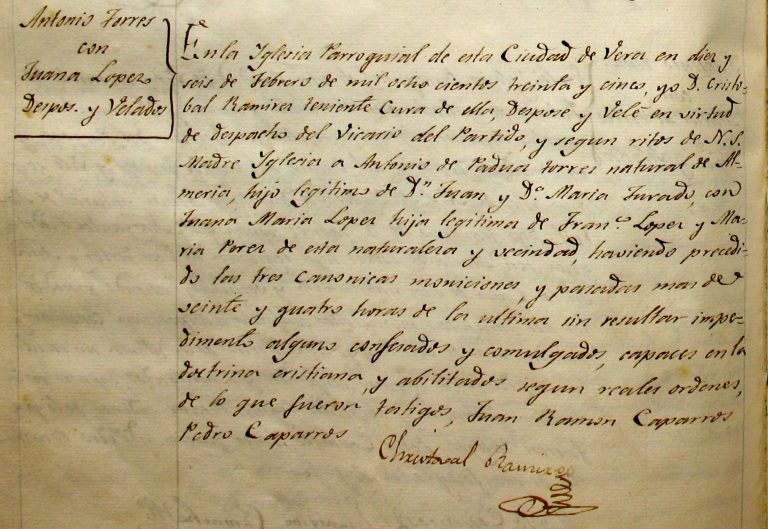 Antonio Torres
con
Juana Lopez
Despos. y Velados
En la Iglesia Parroquial de esta Ciudad de Vera en diez y
seis de Febrero de mil ocho cientos treinta y cinco, yo D. Cristo-
bal Ramirez teniente Cura de ella, Despose y Velé en virtud
de despacho del Vicario del Partido, y segun ritos de N.S.
Madre Yglesia a Antonio de Padua torres natural de Al-
meria, hijo legitimo de Dn. Juan y Da. Maria Jurado, con
Juana Maria Lopez hija legitima de Franco. Lopez y Ma-
ria Perez de esta naturaleza y vecindad, haviendo precedi-
do las tres canonicas moniciones, y pasadas mas de
veinte y quatro horas de la ultima sin resultar impe-
dimento alguno confesados y comulgados, capaces en la
doctrina cristiana, y abilitados segun reales ordenes,
de lo que fueron testigos, Juan Ramon Caparros
Pedro Caparros
Christoval Ramirez